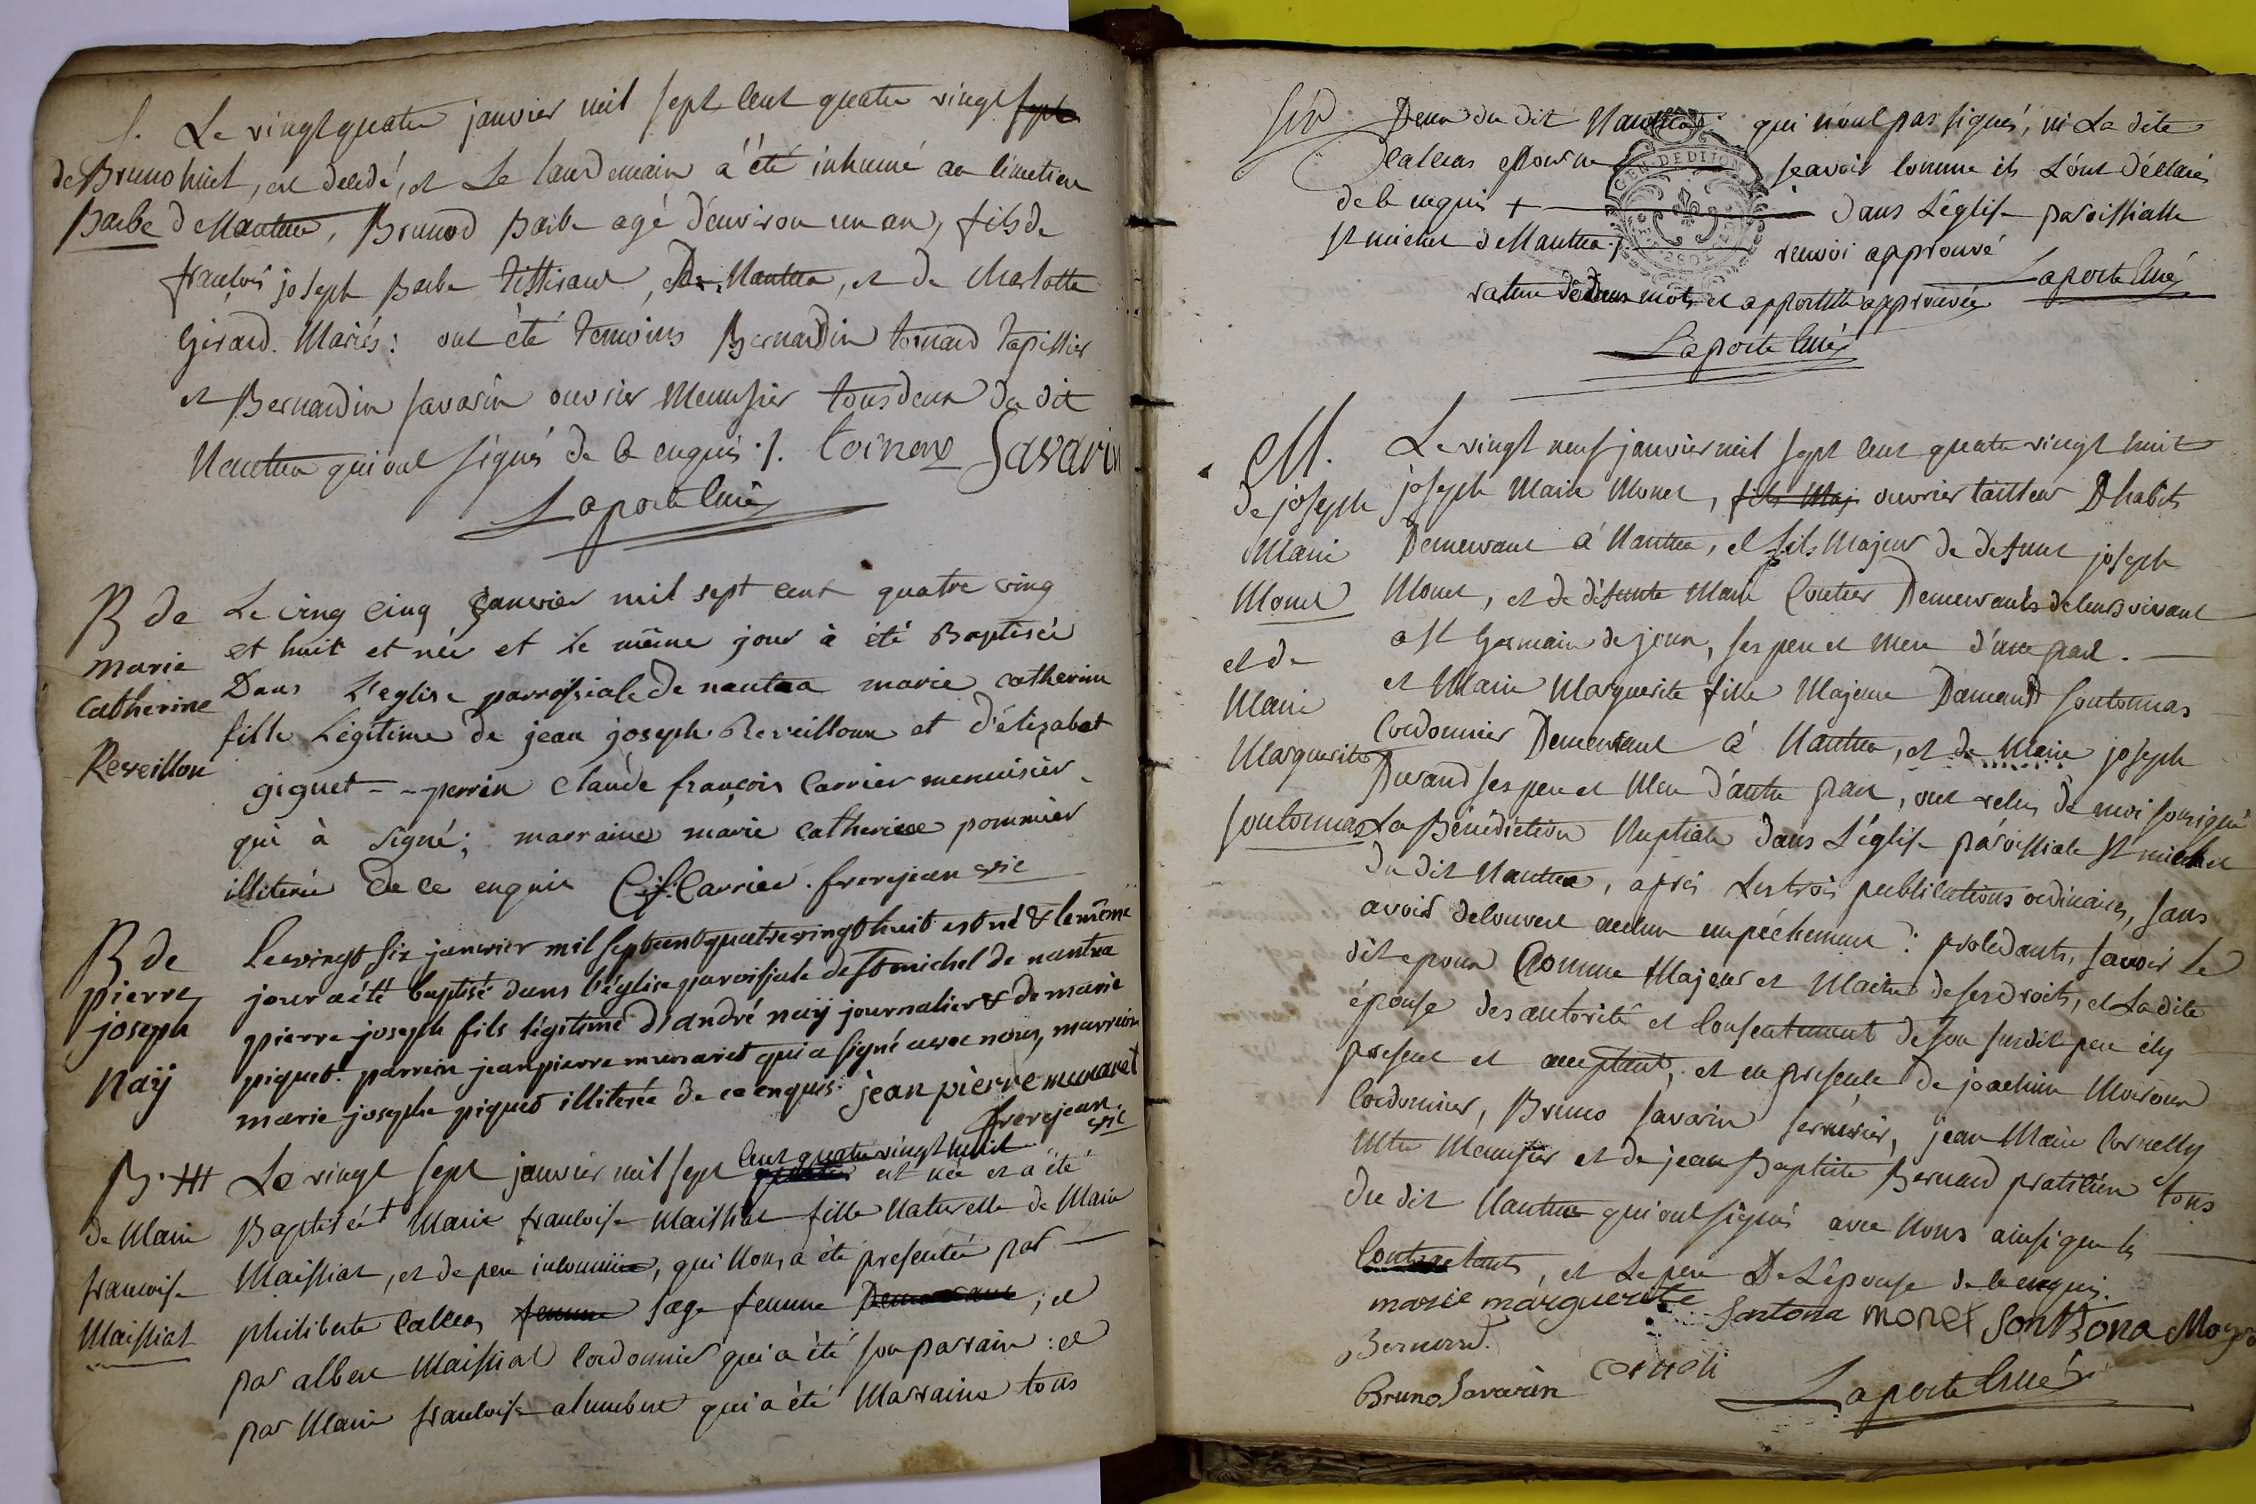 S. Le vingt quatre janvier mil sept cent quatre vingt sept
de Bruno huit, est decedé, et Le landemain a été inhumé au cimetiere
Barbe de Nantua, Bruno Barbe agé d'environ un an, fils de
françois joseph Barbe tisseraut, de Nantua, et de Charlotte
Girard. Mariés: ont été temoins Bernardin toinard tapissier
et Bernardin Savarin ouvrier Menusier tous deux du dit
Nantua qui ont signés de ce enquis ./. toinar Savarin
Laporte Curé
B de Le ving cinq janvier mil sept cent quatre ving
et huit et née et le même jour à été Baptisée
marie Dans L'eglise parroissiale de nantua marie catherine
catherine fille Légitime de jean joseph Reveilloux et d'élizabet
Reveillon giguet - - perrin claude françois Carrier menuisier
qui à signé; marraine marie catherine pommier
illiterée de ce enquis C.f. Carrier . frerejean vic
B de Le vingt six janvier mil sept cent quatre vingt huit est né & le même
pierre jour a été baptisé dans l'église paroissiale de St michel de nantua
joseph pierre joseph fils légitime d'andré naÿ journalier & de marie
naÿ piquet. parrein jean pierre munaret qui a signé avec nous, marreine
marie josephe piquet illiterée de ce enquis. jean pierre munaret
frerejean vic
B. Le vingt sept janvier mil sept cent quatre vingt huit est née et a été
de Marie Baptisée Marie francoise Maissiat fille Naturelle de Marie
francoise Maissiat, et de pere inconnüe, qui Nous a été presentée par
Maissiat philiberte Callias femme sage femme Demeurant ; et
par albert Maissiat Cordonnier qui a été son parrain : et
par Marie francoise alumbert qui a été Marraine tous
Deux du dit Nantua qui n'ont pas signés, ni La dite
Callias pour ne sçavoir comme ils L'ont déclarés
de ce enquis + dans L'église paroissialle
St michel de Nantua ./. renvoi approuvé
Laporte Curé
rature de deux mots et appostille approuvée
Laporte Curé
M. Le vingt neuf janvier mil sept cent quatre vingt huit
de joseph joseph Marie Monet, fils Maj ouvrier tailleur D'habits
Marie Demeurant à Nantua, et fils Majeur de defunt joseph
Monet Monet, et de défunte Marie Coutier Demeurants de leurs vivant
et de a St Germain de joux, ses pere et mere d'une part.
Marie et Marie Marguerite fille Majeure Damand Sontonnas
Marguerite Cordonnier Demeurant à Nantua, et de Marie joseph
Durand ses pere et Mere d'autre part, ont recus de moi soussigné
Sontonnas La Bénédiction Nuptiale dans L'église paroissiale St michel
du dit Nantua, aprés Les trois publications ordinaires, sans
avoir découvert aucun empéchement : procedants, savoir Le
dit epoux Comme Majeur et Maitre de ses droits, et La dite
épouse des autorité et Consentement de son susdit pere icy
present et acceptant, et en presence de joachim
Cordonnier, Bruno Savarin serrurier, jean Marie Cornelly
Mtre Menusier et de jean Baptiste Bernard praticien tous
du dit Nantua qui ont signés avec Nous ainsi que les
Contractants, et Le pere De L'épouse de ce enquis.
marie marguerite Sontona monet Sontona
Bernard.
Bruno Savarin corneli
Laporte Curé